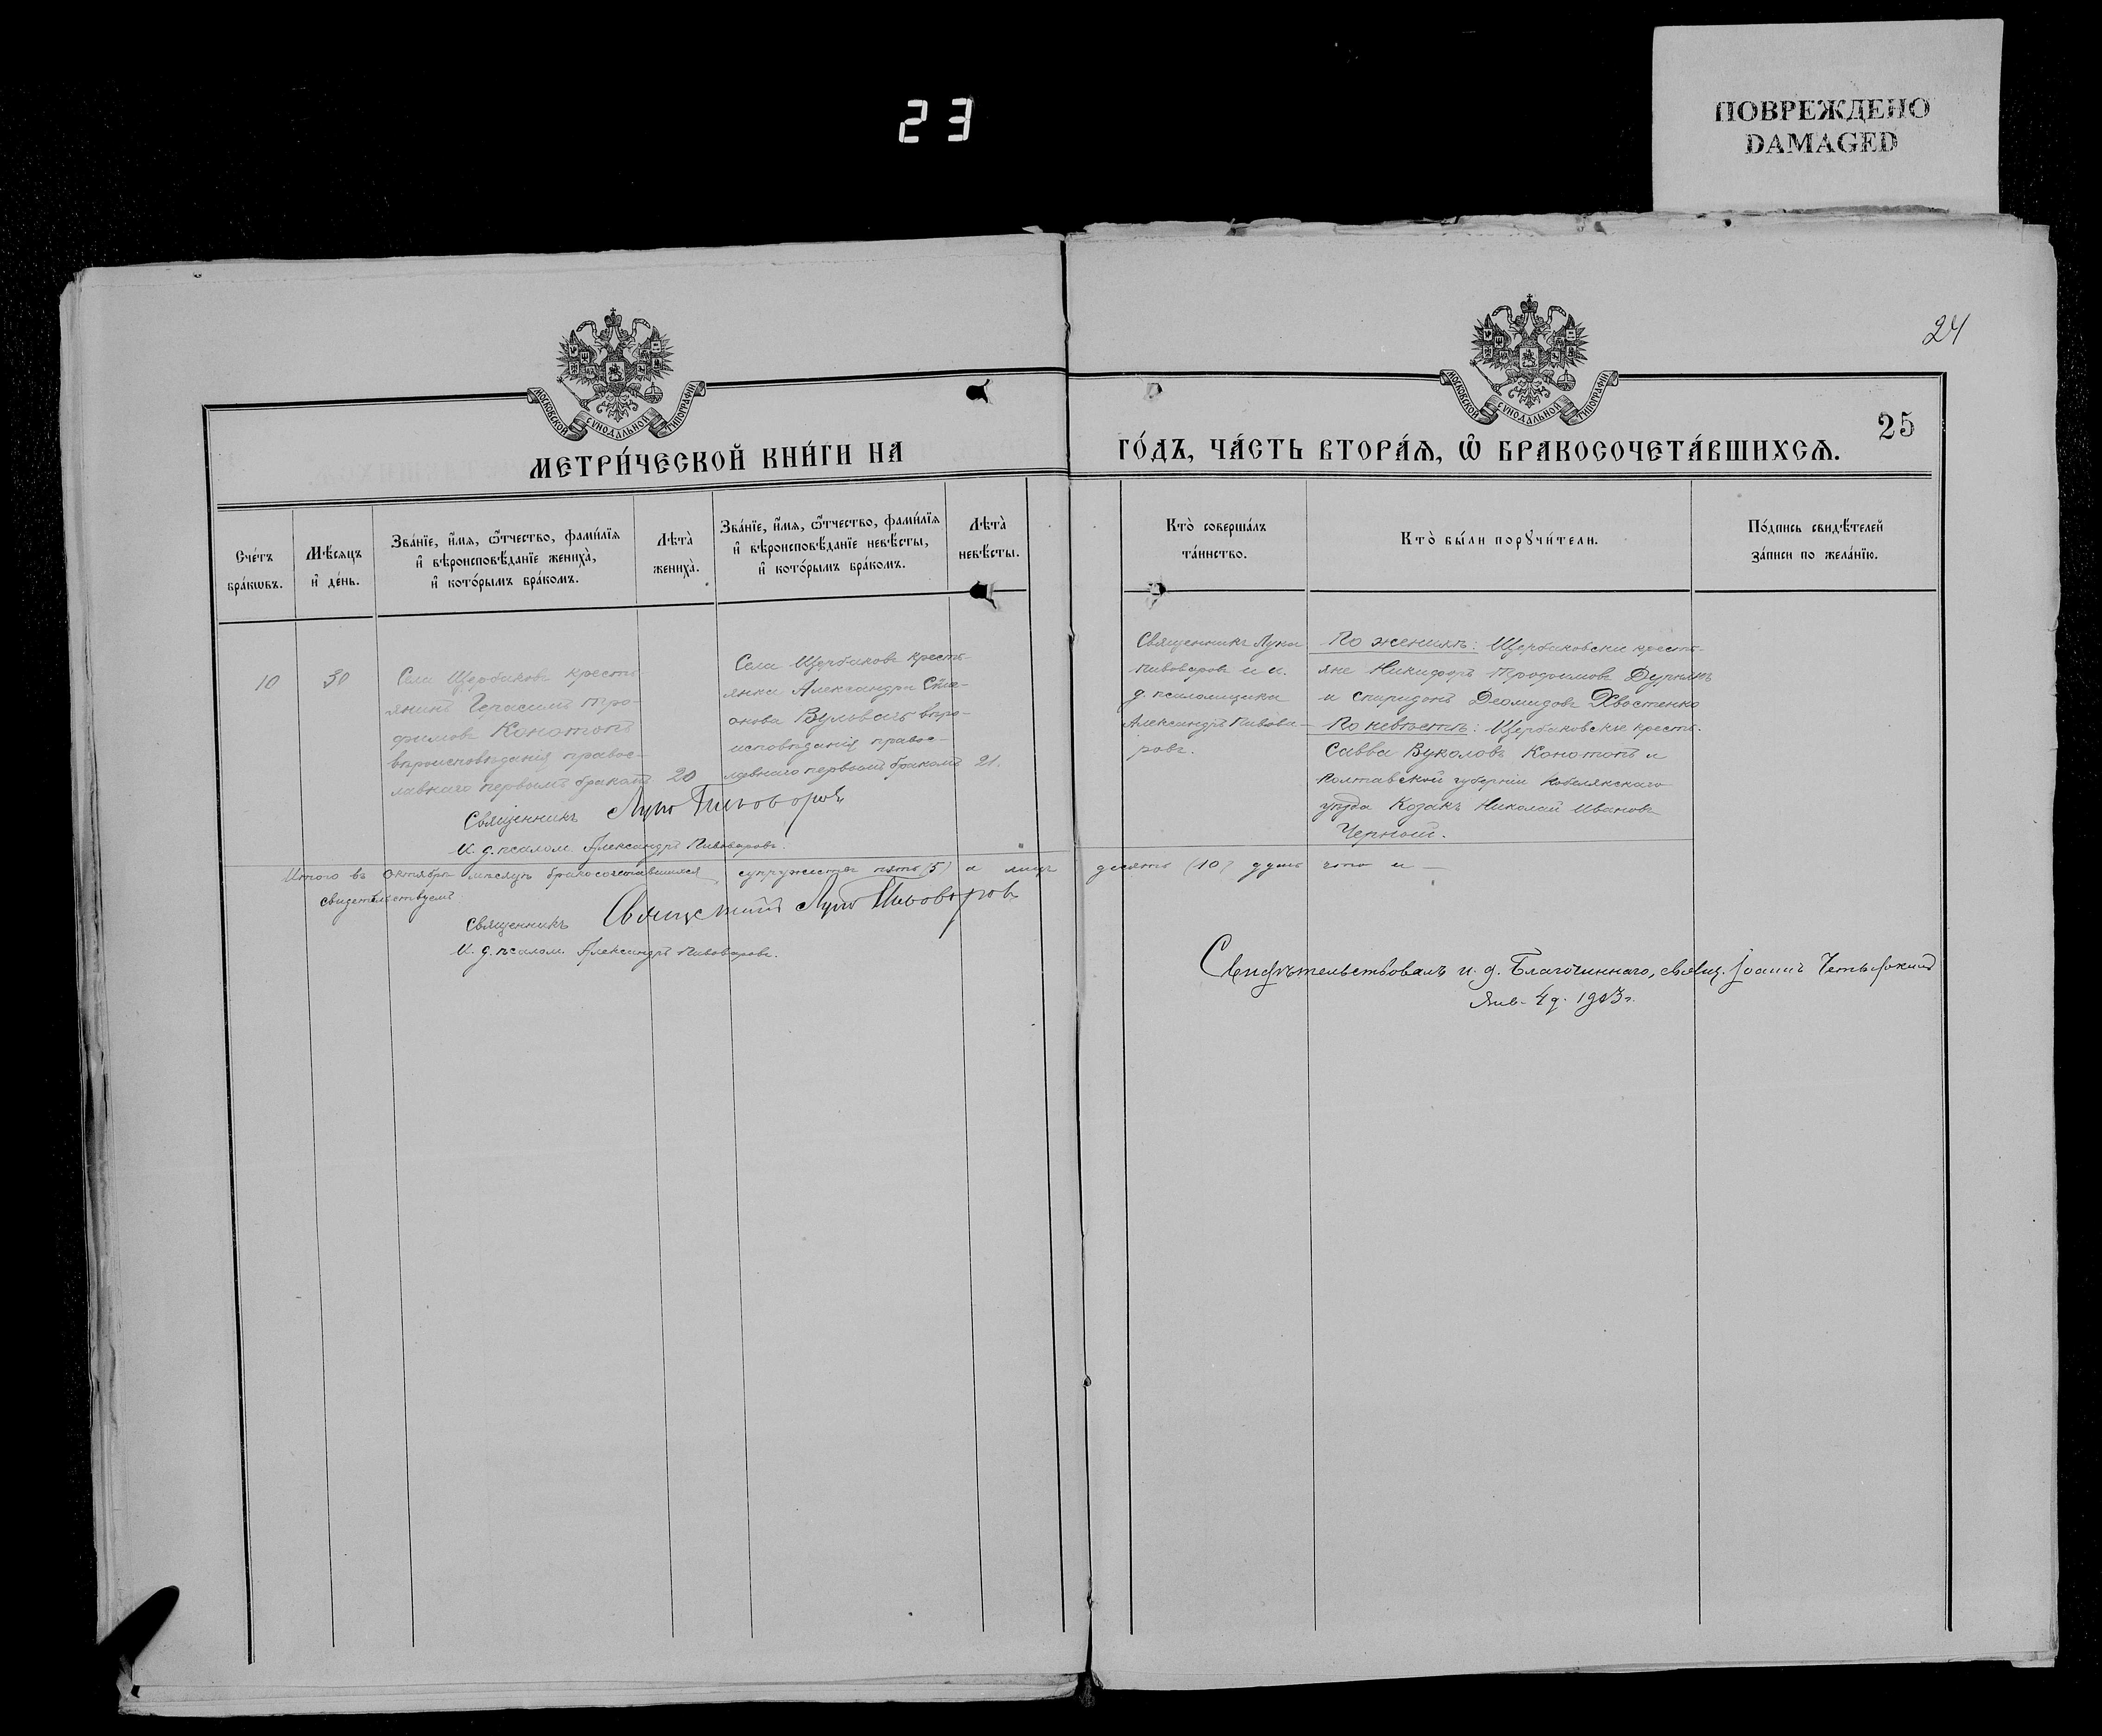 23
ПОВРЕЖДЕНО
DAMAGED
24
25
МОСКОВСКОЙ СѴНОДАЛЬНОЙ ТИПОГРАФІИ
МОСКОВСКОЙ СѴНОДАЛЬНОЙ ТИПОГРАФІИ
МЕТРИ́ЧЕСКОЙ КНИ́ГИ НА
ГО́ДЪ, ЧА́СТЬ ВТОРА́Ѧ, Ѽ БРАКОСОЧЕТА́ВШИХСѦ.
Сче́тъ
бра́кѡвъ.
Мѣ́сяцъ
и҆ де́нь.
Зва́нїе, и҆́мѧ, ѻ҆́тчество, фамилїѧ
и҆ вѣроисповѣ́данїе жениха̀,
и҆ кото́рымъ бра́комъ.
Лѣта̀
жениха̀.
Зва́нїе, и҆́мѧ, ѻ҆́тчество, фамилїѧ
и҆ вѣроисповѣ́данїе невѣ́сты,
и҆ кото́рымъ бра́комъ.
Лѣта̀
невѣ́сты.
Кто̀ соверша́лъ
та́инство.
Кто̀ бы́ли порꙋчи́тели.
По́дпись свидѣ́телей
за́писи по жела́нїю.
10
30
Села Щербаковъ кресть-
янинъ Герасимъ Тро-
фимовъ Конотопъ
вѣроисповѣданія правос-
лавнаго первымъ бракомъ
20
Села Щербаковъ кресть-
янка Александра
Вульвачъ вѣро-
исповѣданія правос-
лавнаго первымъ бракомъ
21.
Священникъ Лука
Пивоваровъ и и.
д. псаломщика
Александръ Пивова-
ровъ.
По женихѣ: Щербаковскіе кресть-
яне Никифоръ Трофимовъ
и Спиридонъ Деомидовъ Хвостенко
По невѣстѣ: Щербаковскіе кресть.
Савва Вуколовъ Конотопъ и
Полтавской губерніи Кобелякскаго
уѣзда Козакъ Николай Ивановъ
Черный.
Священникъ Лука Пивоваровъ
И. д. псалом. Александръ Пивоваровъ.
Итого въ Октябрѣ мѣсяцѣ бракосочетавшихся супружествъ пять (5) а лицъ десять (10) душъ что и —
свидетельствуемъ
Священникъ Священникъ Лука Пивоваровъ
И. д. псалом. Александръ Пивоваровъ.
Свидѣтельствовалъ и. д. Благочиннаго, свящ. Іоаннъ
Янв. 4 д. 1903 г.